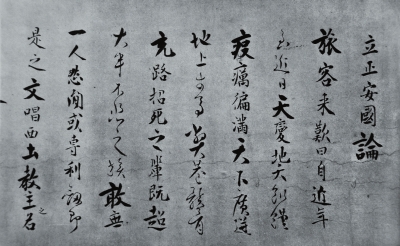 立正安國論
旅客来歎曰自近年
至近日天變地夭飢饉
疫癘遍滿天下廣迸
地上牛馬斃巷骸骨
充路招死之輩既超
大半不悲之族敢無
一人然間或專利劔即
是之文唱西土教主之名